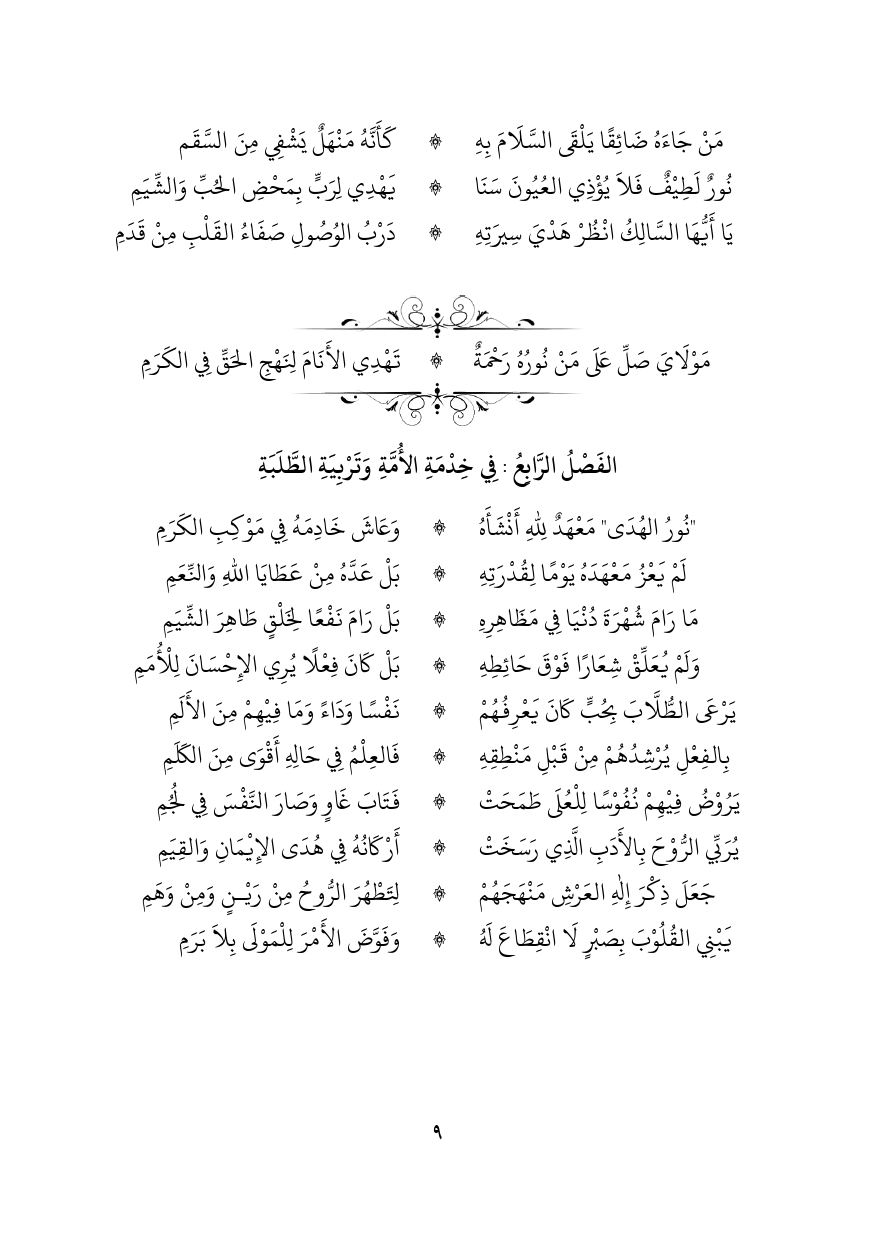 مَنْ جَاءَهُ ضَائِقًا يَلْقَى السَّلَامَ بِهِ ۞ كَأَنَّهُ مَنْهَلٌ يَشْفِي مِنَ السَّقَم
نُورٌ لَطِيْفٌ فَلاَ يُؤْذِي العُيُونَ سَنَا ۞ يَهْدِي لِرَبٍّ بِمَحْضِ الحُبِّ وَالشِّيَمِ
يَا أَيُّهَا السَّالِكُ انْظُرْ هَدْيَ سِيرَتِهِ ۞ دَرْبُ الوُصُولِ صَفَاءُ القَلْبِ مِنْ قَدَمِ
مَوْلَايَ صَلِّ عَلَى مَنْ نُورُهُ رَحْمَةٌ ۞ تَهْدِي الأَنَامَ لِنَهْجِ الحَقِّ فِي الكَرَمِ
الفَصْلُ الرَّابِعُ : فِي خِدْمَةِ الأُمَّةِ وَتَرْبِيَةِ الطَّلَبَةِ
"نُورُ الهُدَى" مَعْهَدٌ لِلهِ أَنْشَأَهُ ۞ وَعَاشَ خَادِمَهُ فِي مَوْكِبِ الكَرَمِ
لَمْ يَعْزُ مَعْهَدَهُ يَوْمًا لِقُدْرَتِهِ ۞ بَلْ عَدَّهُ مِنْ عَطَايَا اللهِ وَالنِّعَمِ
مَا رَامَ شُهْرَةَ دُنْيَا فِي مَظَاهِرِهِ ۞ بَلْ رَامَ نَفْعًا لِخَلْقٍ طَاهِرَ الشِّيَمِ
وَلَمْ يُعَلِّقْ شِعَارًا فَوْقَ حَائِطِهِ ۞ بَلْ كَانَ فِعْلًا يُرِي الإِحْسَانَ لِلْأُمَمِ
يَرْعَى الطُّلَّابَ بِحُبٍّ كَانَ يَعْرِفُهُمْ ۞ نَفْسًا وَدَاءً وَمَا فِيْهِمْ مِنَ الأَلَمِ
بِالفِعْلِ يُرْشِدُهُمْ مِنْ قَبْلِ مَنْطِقِهِ ۞ فَالعِلْمُ فِي حَالِهِ أَقْوَى مِنَ الكَلَمِ
يَرُوْضُ فِيْهِمْ نُفُوْسًا لِلْعُلَى طَمَحَتْ ۞ فَتَابَ غَاوٍ وَصَارَ النَّفْسَ فِي لُجُمِ
يُرَبِّي الرُّوْحَ بِالأَدَبِ الَّذِي رَسَخَتْ ۞ أَرْكَانُهُ فِي هُدَى الإِيْمَانِ وَالقِيَمِ
جَعَلَ ذِكْرَ إِلٰهِ العَرْشِ مَنْهَجَهُمْ ۞ لِتَطْهُرَ الرُّوحُ مِنْ رَيْنٍ وَمِنْ وَهَمِ
يَبْنِي القُلُوْبَ بِصَبْرٍ لَا انْقِطَاعَ لَهُ ۞ وَفَوَّضَ الأَمْرَ لِلْمَوْلَى بِلاَ بَرَمِ
٩